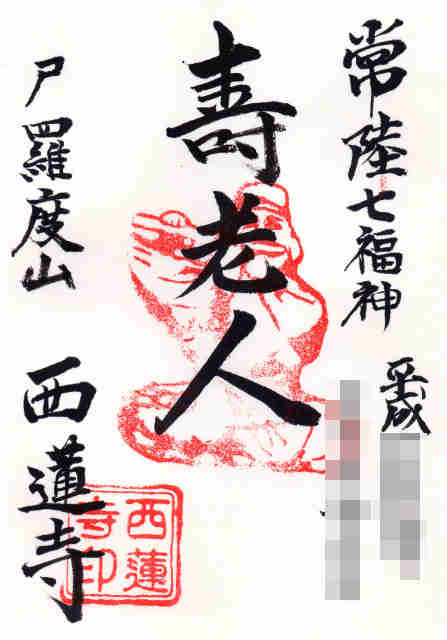 常陸七福神
平成
壽老人
尸羅度山
西蓮寺
西蓮
寺印